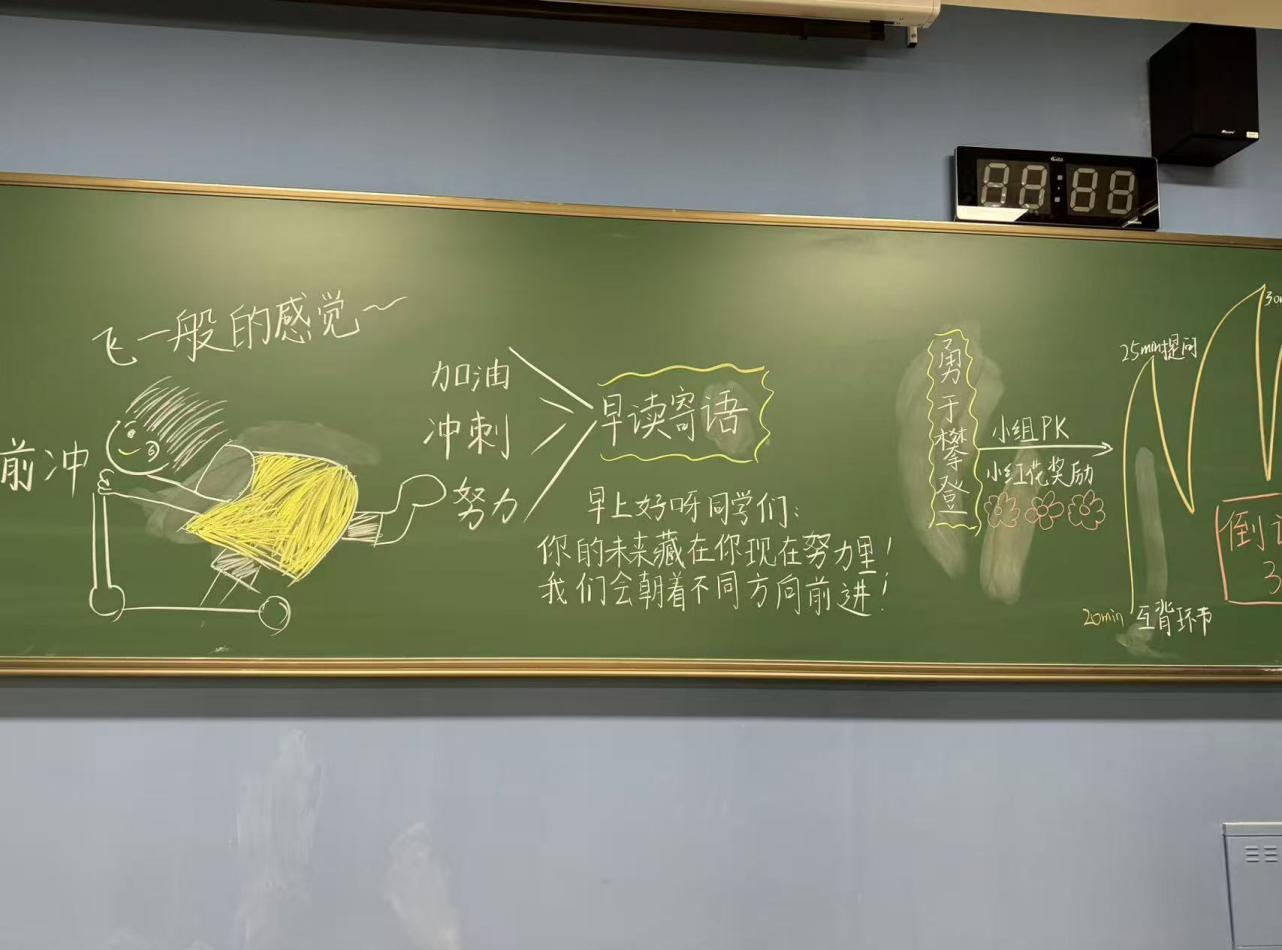 飞一般的感觉~
前冲
加油
冲刺
努力
早读寄语
早上好呀同学们:
你的未来藏在你现在努力里!
我们会朝着不同方向前进!
勇于攀登
小组PK
小红花奖励
25min提问
20min 互背环节
30
倒计
3
88:88